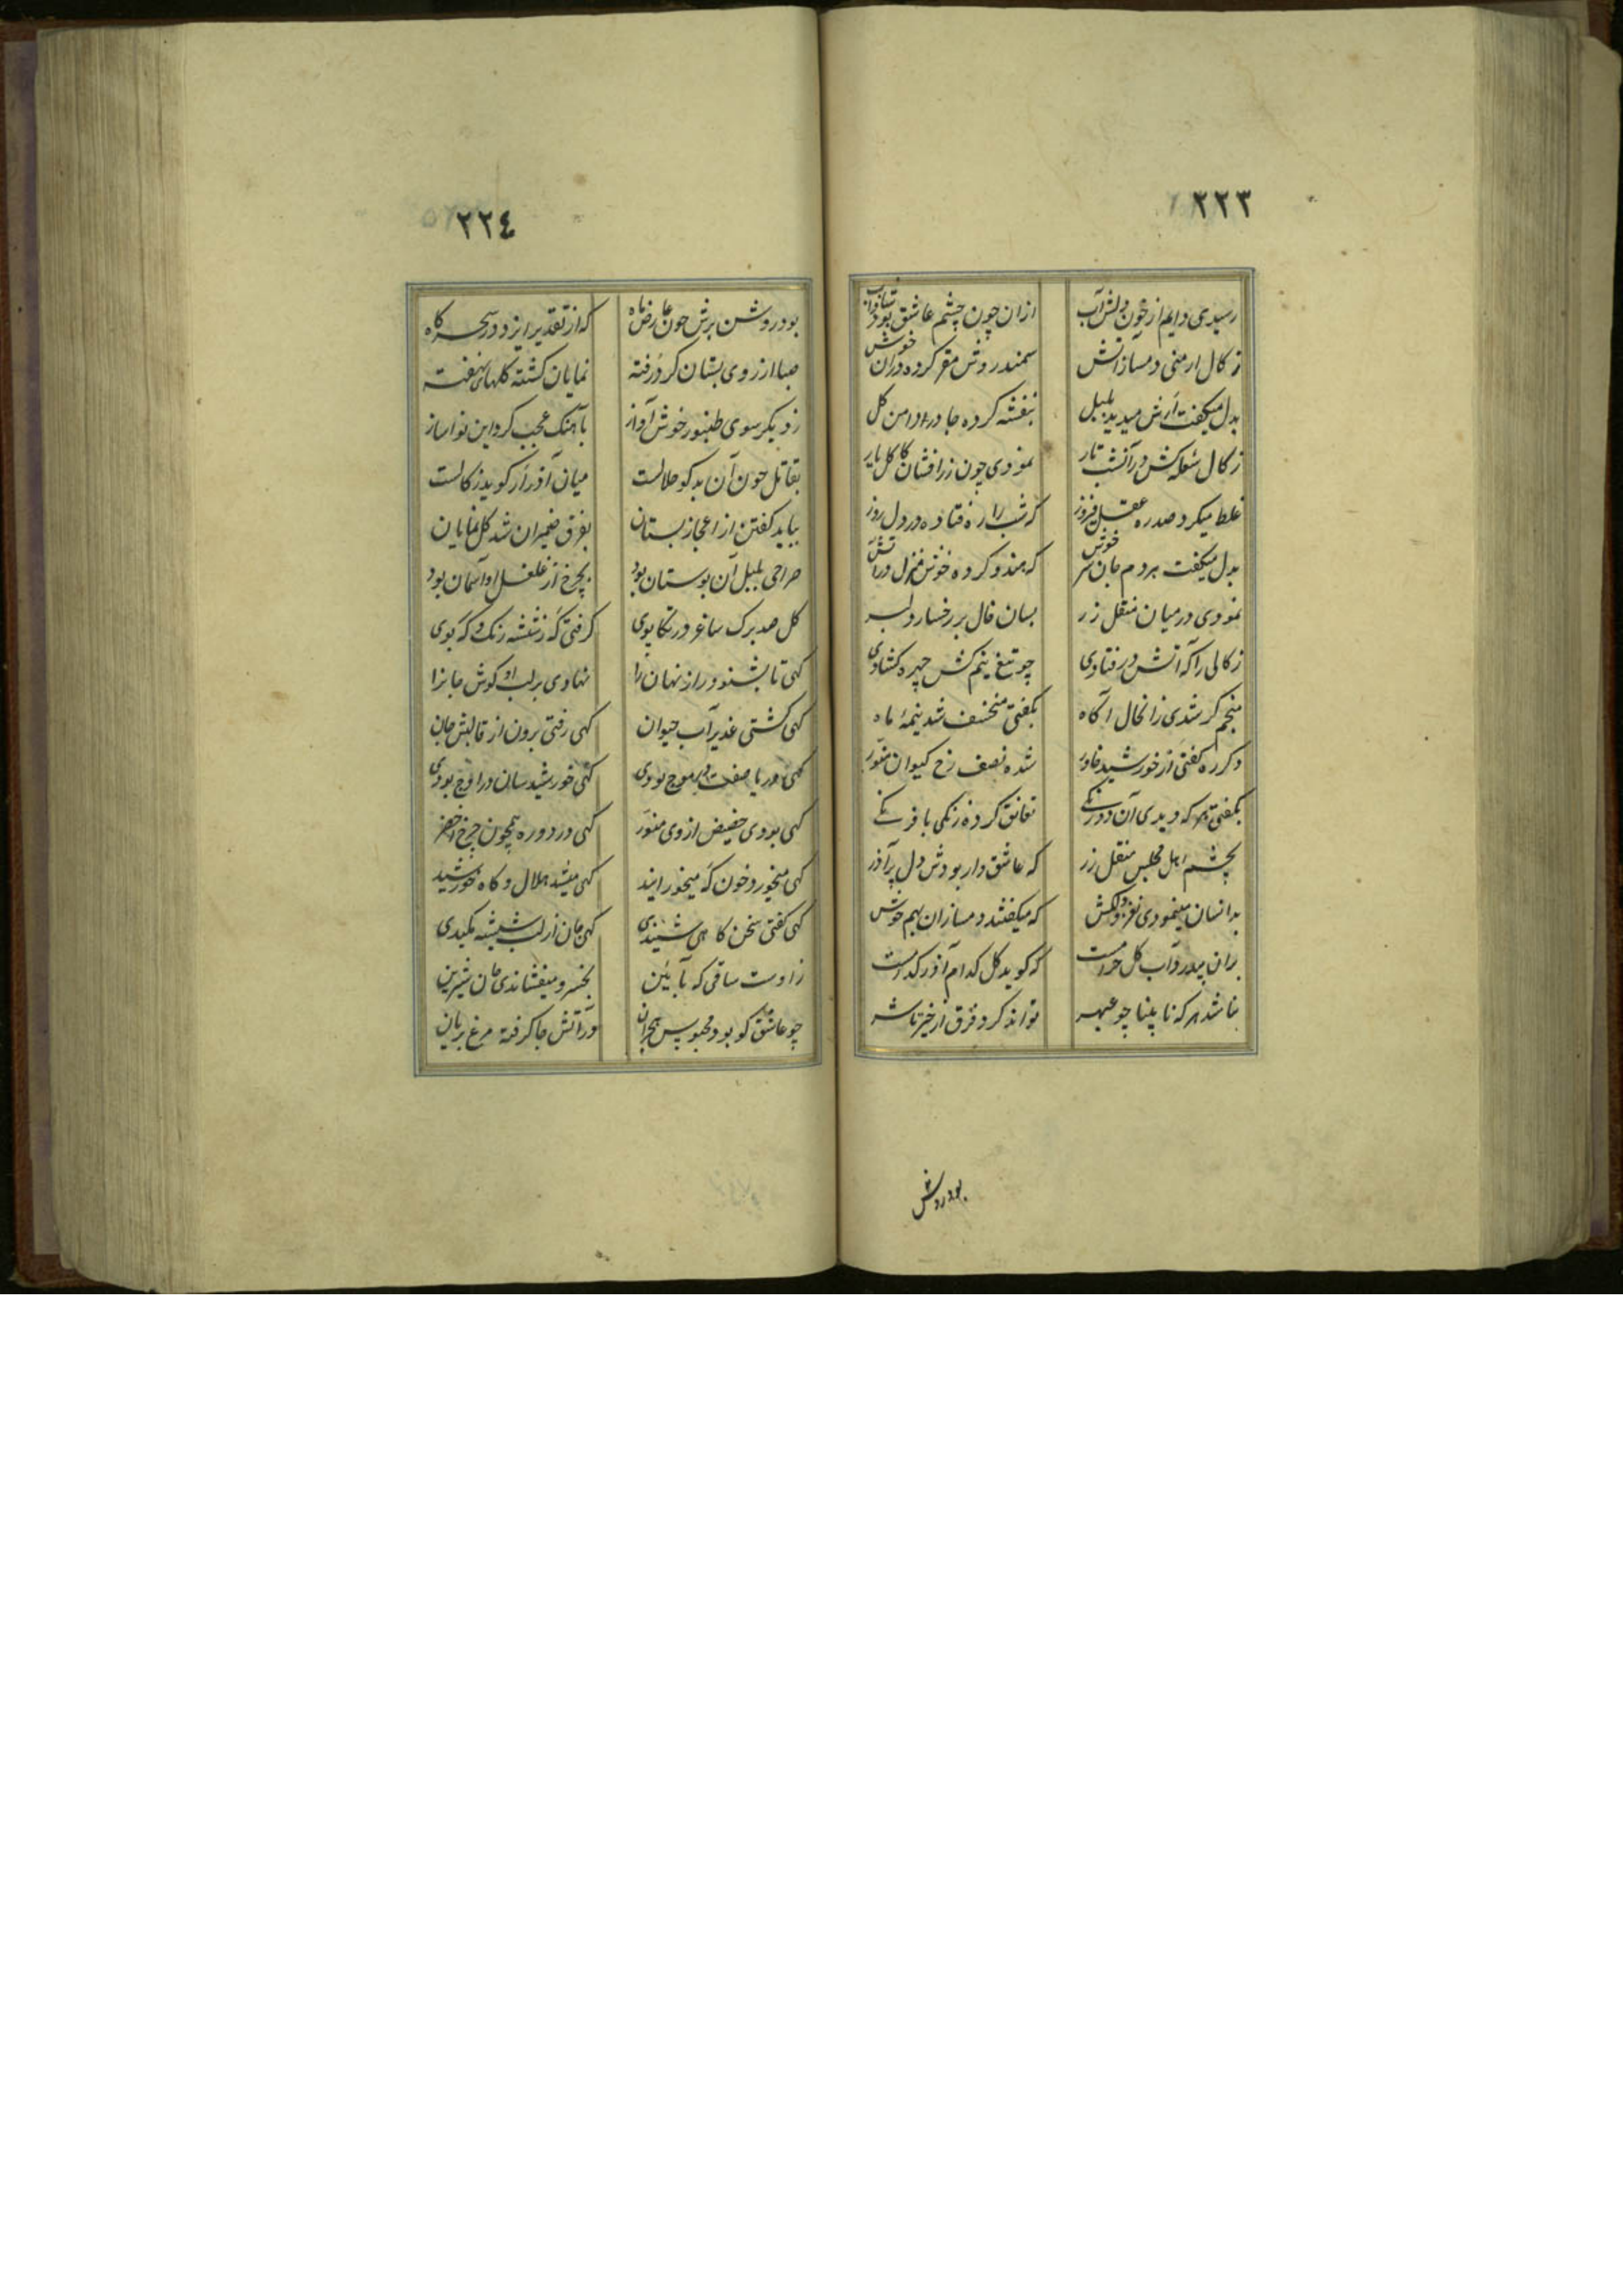 ٢٢٣
رسیدی دایم از خون دلش آب ازان چون چشم عاشق بود
ز کال ارمنی دمساز آتش سمندر وش مقر کرده دران خوش
بدل میگفت ارش میدید بلبل بنفشه کرده جا در دامن کل
ز کال شعله کش در آنشب تار نمودی چون زرافشان کاکل یار
غلط میکرد صد ره عقل فیروز که شب را ره فتاده در دل روز
بدل میگفت هر دم جان سرخوش که هندو کرده خوش منزل در آتش
نمودی در میان منقل زر بسان خال بر رخسار دلبر
زکالی را که آتش در فتادی چو تیغ نیم کش چهره کشادی
منجم کر شدی زانحال آکاه بکفتی منخسف شد نیمهٔ ماه
دکر ره کفتی از خورشید خاور شده نصف رخ کیوان منور
بکفتی هر که دیدی آن دورنکی تعانق کرده زنکی با فرنکی
بچشم اهل مجلس منقل زر که عاشق وار بودش دل پر آذر
بدانسان مینمودی نغز و دلکش که میکفتند دمسازان بهم خوش
بران بیدرد آب کل حرامست که کوید کل کدام آذر کدامست
نباشد هر که نابینا چو عبهر تواند کرد فرق از خیر تا شر
بود روشن
٢٢٤
بود روشن برش چون عارض ماه که از تقدیر ایزد در سحرکاه
صبا از روی بستان کرد رفته نمایان کشته کلهای نهفته
ز دیکر سوی طنبور خوش آواز بآهنک عجب کرد این نوا ساز
بقاتل خون آن بدکو حلالست میان آذر ار کوید زکالست
بباید کفتن از اعجاز بستان بفرق ضیمران شد کل نمایان
صراحی بلبل آن بوستان بود بچرخ از غلغل او آسمان بود
کل صد برک ساغر در تکاپوی کرفتی که ز شیشه رنک و که بوی
کهی تا بشنود راز نهان را نهادی بر لب او کوش جانرا
کهی کشتی غدیر آب حیوان کهی رفتی برون از قالبش جان
کهی دریا صفت در موج بودی کهی خورشید سان در اوج بودی
کهی بودی حضیض از وی منور کهی در دوره همچون چرخ اخضر
کهی میخورد خون که میخورانید کهی میشد هلال و کاه خورشید
کهی کفتی سخن کاهی شنیدی کهی جان از لب شیشه مکیدی
ز دست ساقی که بآیین بخسرو میفشاندی جان شیرین
چو عاشق کو بود محبوس هجران در آتش جا کرفته مرغ بریان